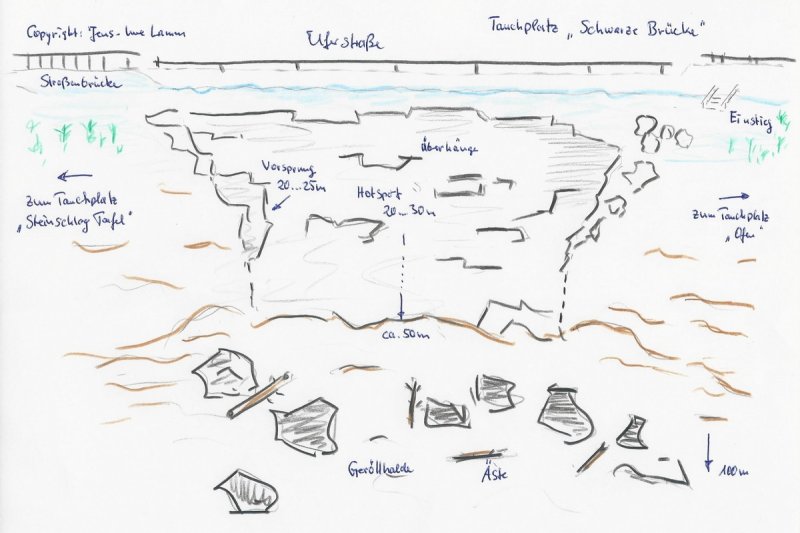 Copyright: Jens-Uwe Lamm
Uferstraße
Tauchplatz „Schwarze Brücke"
Straßenbrücke
Einstieg
Überhänge
Vorsprung
20...25m
Hotspot
20...30m
zum Tauchplatz
„Steinschlag Tafel"
zum Tauchplatz
„Ofen"
ca. 50m
Geröllhalde
Äste
100m